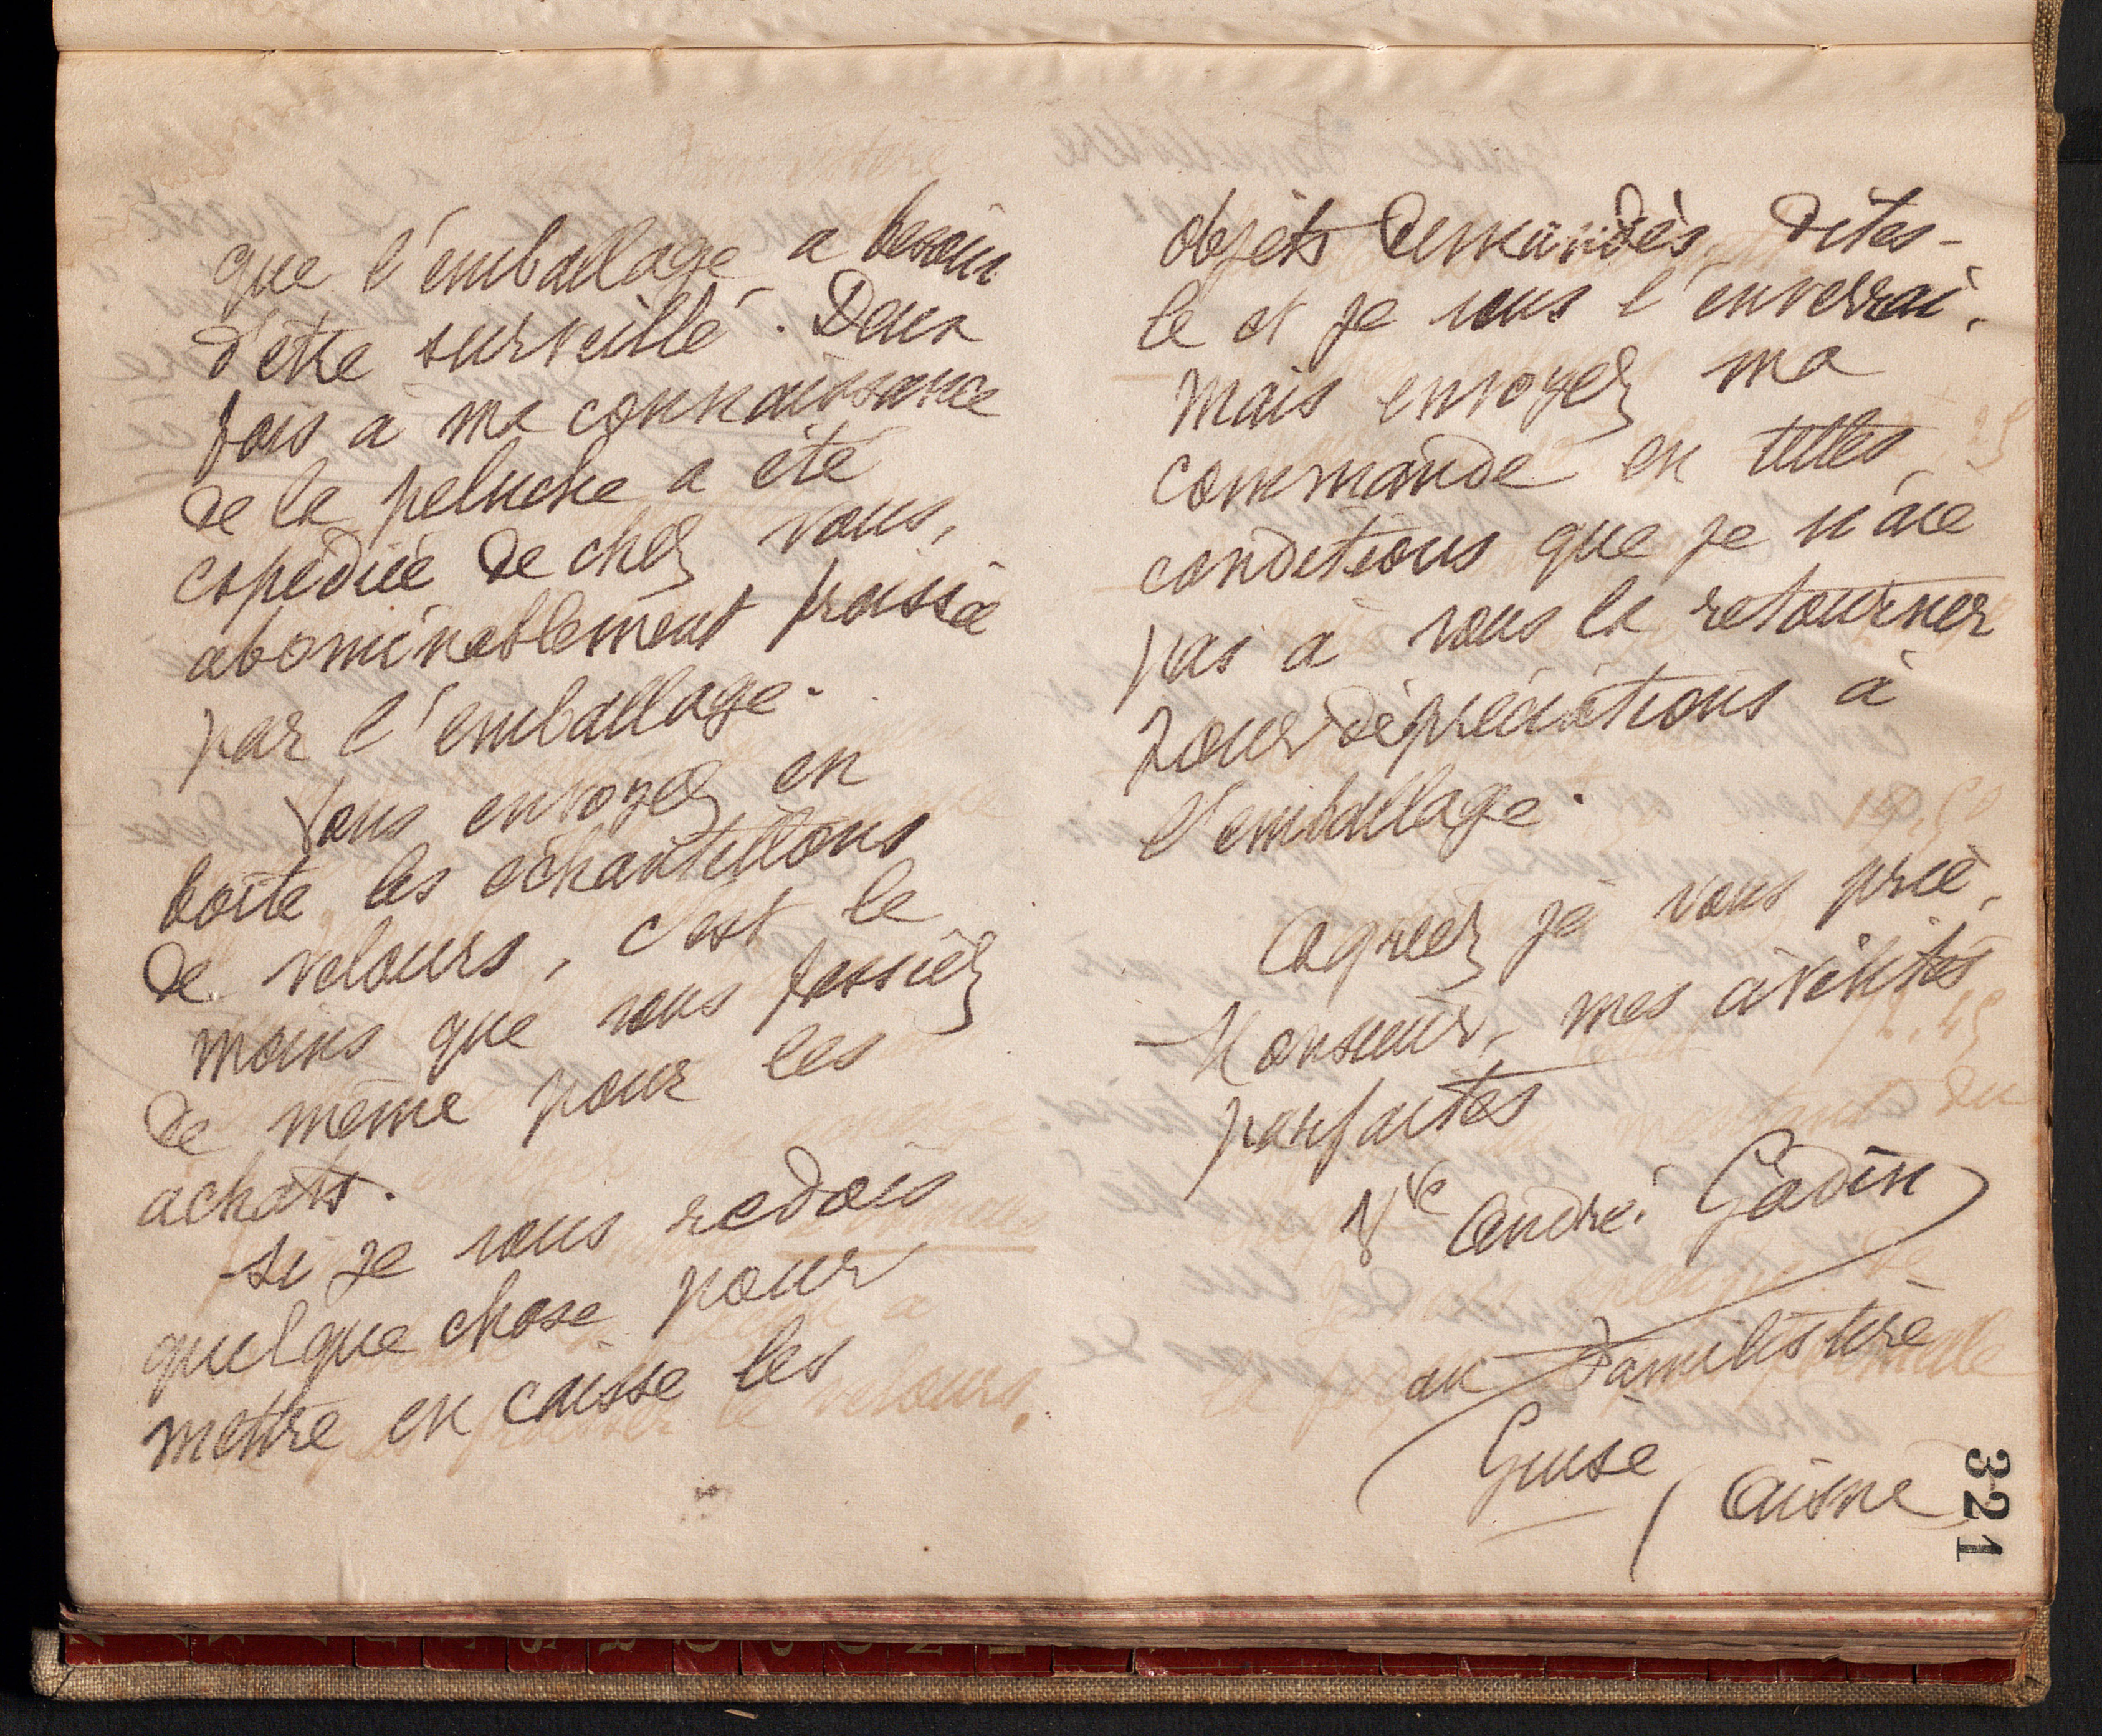 que l'emballage a besoin
d'être surveillé. Deux
fois à ma connaissance
de la peluche a été
expédiée de chez vous,
abominablement froissée
par l'emballage.
Vous envoyez en
boîte les échantillons
de velours, c'est le
moins que vous fassiez
de même pour les
achats.
Si je vous redois
quelque chose pour
mettre en caisse les
objets demandés, dites-
le et je vous l'enverrai.
Mais envoyez ma
commande en telles
conditions que je n'aie
pas à vous la retourner
pour dépréciations à
l'emballage.
Agréez je vous prie,
Monsieur, mes civilités
parfaites
Vve André. Godin
au Familistère
Guise
Aisne
321